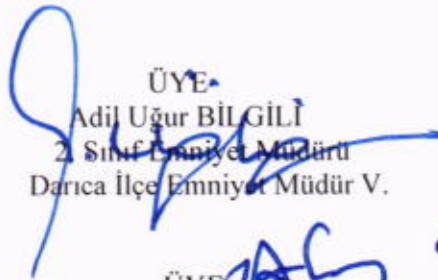 ÜYE
Adil Uğur BİLGİLİ
2. Sınıf Emniyet Müdürü
Darıca İlçe Emniyet Müdür V.
ÜYE